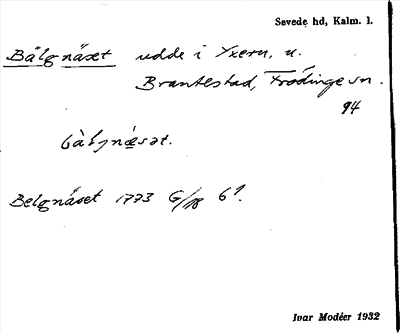 Sevede hd, Kalm. l.
Bälgnäset udde i Yxern, u.
Brantestad, Frödinge sn.
94
bàlgnä̀sət.
Belgnäset 1773 G/18 6¹.
Ivar Modéer 1932